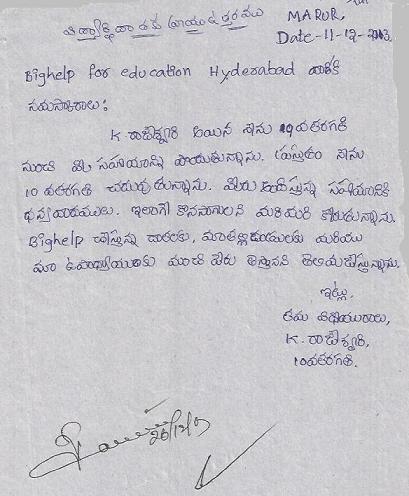 విద్యార్థి దాతకు వ్రాయు ఉత్తరము
MARUR,
Date-11-12-2013.
Bighelp for education Hyderabad వారికి
నమస్కారాలు:
K రాజేశ్వరి అయిన నేను 9వతరగతి
నుంచి మీ సహాయాన్ని పొందుతున్నాను. ప్రస్తుతం నేను
10 వతరగతి చదువుతున్నాను. మీరు చేస్తున్న సహాయానికి
ధన్యవాదములు. ఇలాగే కొనసాగాలని మరిమరి కోరుతున్నాను.
Bighelp చేస్తున్న దాతలకు, మా తల్లిదండ్రులకు మరియు
మా ఉపాధ్యాయులకు మంచి పేరు తెస్తానని తెలియజేస్తున్నాను.
ఇట్లు,
తమ విధేయురాలు,
K. రాజేశ్వరి,
10వతరగతి.